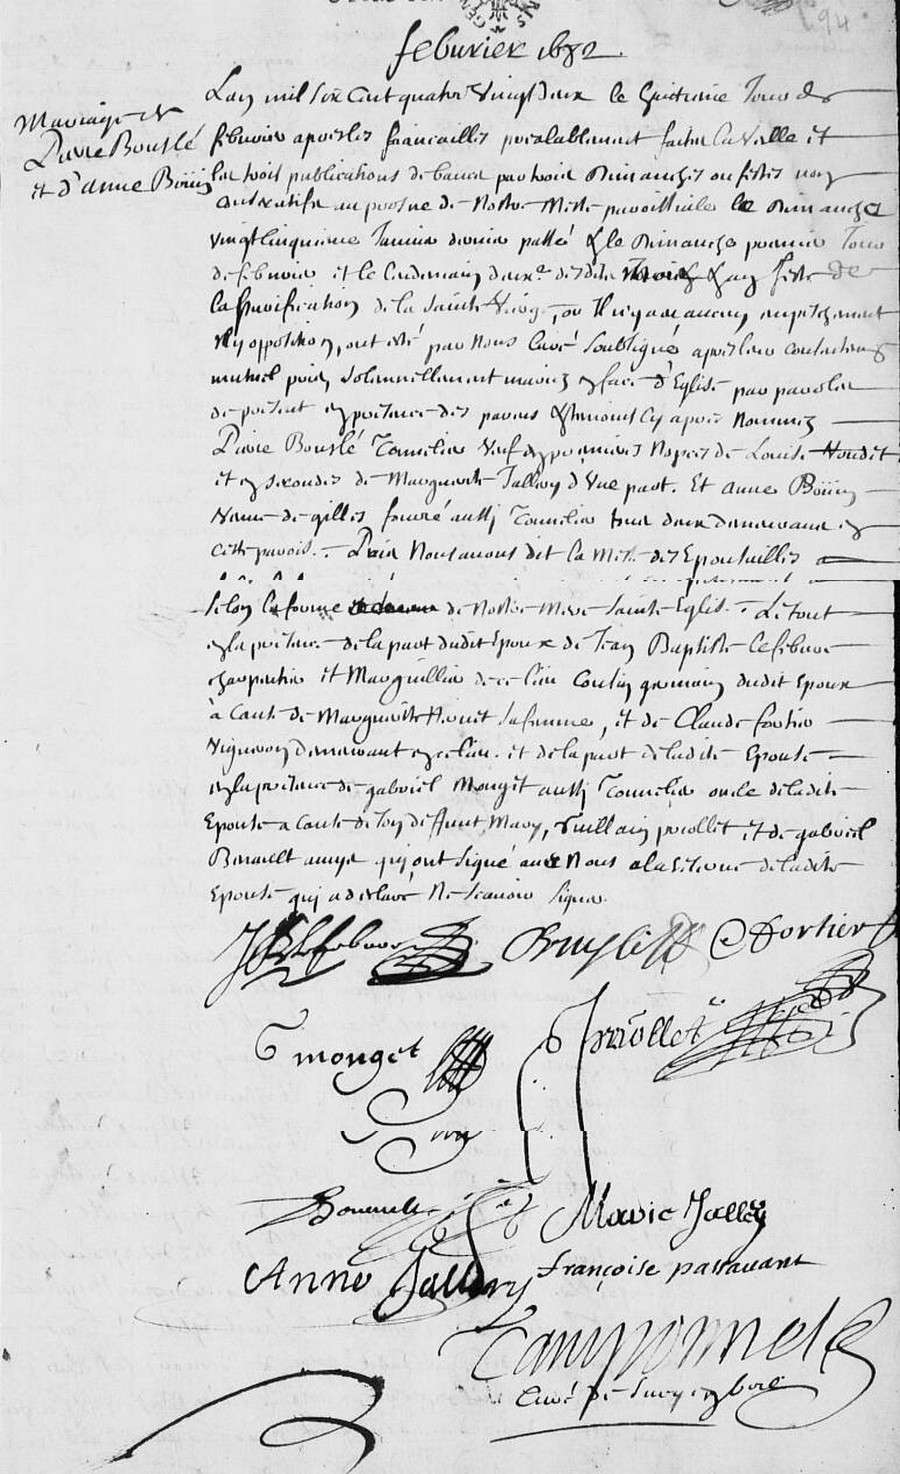 feburier 1682
Mariage de
Pierre Bouslé
et d'anne Boüin
Lan mil six cent quatre vingt deux le huitieme Jour de
febvrier apres les fiancailles prealablement faites la veille et
les trois publications de bancs par trois Dimanches ou festes non
consecutifs au prosne de Nostre Messe parroissiale le Dimanche
vingt cinquieme Janvier dernier passé & le Dimanche premier Jour
de febvrier et le lendemain deuxe desdits & Jour feste de
la Purification de la Sainte Vierge, ou Il n'y a eu aucun empeschement
n'y opposition, ont esté par Nous Curé soubsigné apres leur consentement
mutuel pris solennellement mariez en face d'Eglise par parolles
de present en presence des parens & temoins cy apres nommez
Pierre Bouslé Tonnelier veuf en premieres Nopces de Louise
et en secondes de Marguerite Jallery d'Une part. Et Anne Boüin
veuve de gilles fouré aussi Tonnelier tous deux demeurans en
cette paroisse. Puis Nous avons dit la Messe des Epousailles
selon la forme de Nostre Mere Sainte Eglise. Le tout
en la presence de la part dudit Epoux de Jean Baptiste Lefebvre
charpentier et Marguillier de ce lieu Cousin germain dudit Epoux
à cause de Marguerite sa femme, et de Claude fortier
Vigneron demeurant en ce lieu. et de la part de ladite Epouse
en la presence de gabriel Monget aussi Tonnelier oncle de ladite
Epouse a cause de son deffunt Mary, Guillain priollet et de gabriel
Benault amys qui ont signé avec Nous a la reserve de ladite
Epouse qui a declaré Ne scavoir signer.
JB Lefebvre
C Fortier
G monget
G priollet
Marie Jallery
Anne Jallery
françoise passavant
Tamponnet
Curé De Sucy en brie